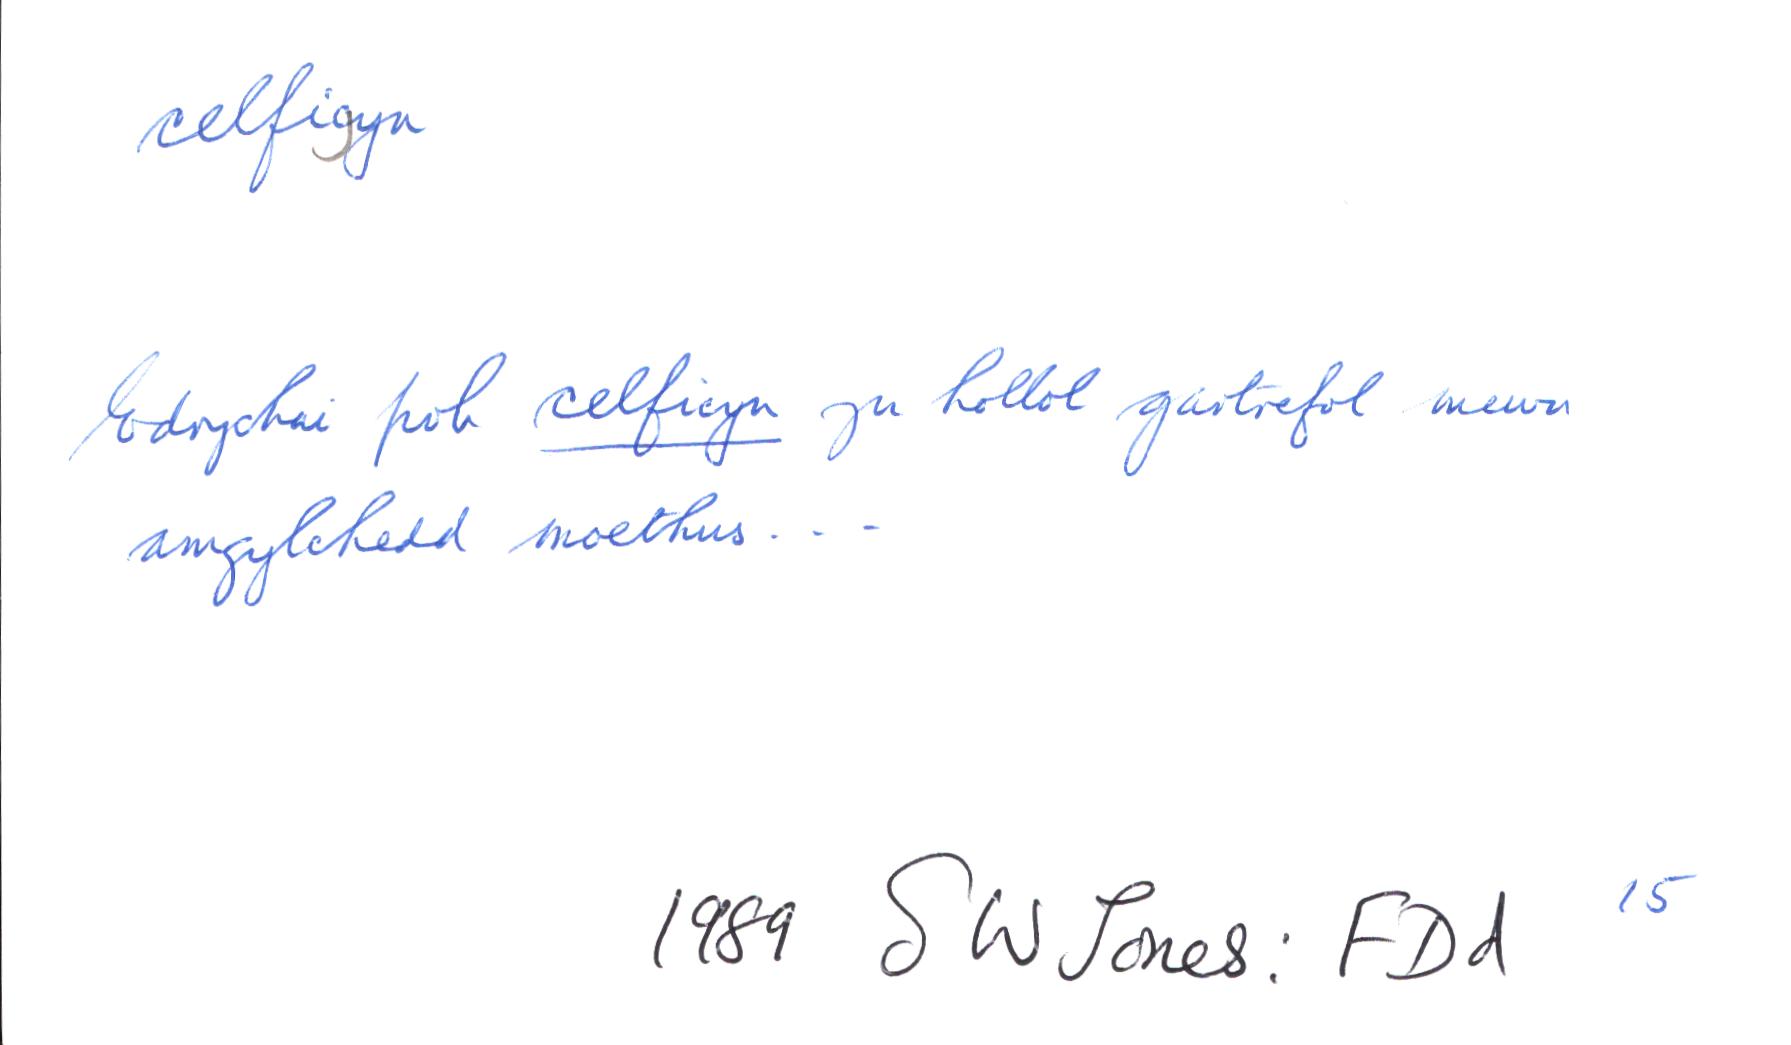 celfigyn
Edrychai pob celficyn yn hollol gartrefol mewn
amgylchedd moethus . . -
1989 S W Jones : FDd 15